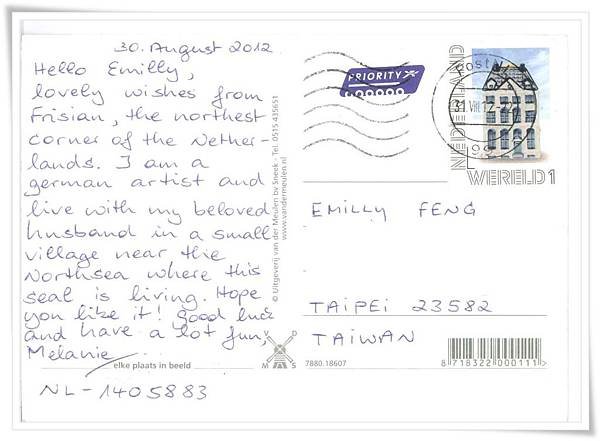 30. August 2012
Hello Emilly,
lovely wishes from
Frisian, the northest
corner of the Nether-
lands. I am a
german artist and
live with my beloved
husband in a small
village near the
Northsea where this
seal is living. Hope
you like it! Good luck
and have a lot fun,
Melanie
elke plaats in beeld
NL-1405883
© Uitgeverij van der Meulen bv Sneek - Tel. 0515 435651
www.vandermeulen.nl
V D
M S
PRIORITY
NEDERLAND
WERELD 1
EMILLY FENG
TAIPEI 23582
TAIWAN
7880.18607
8718322000111